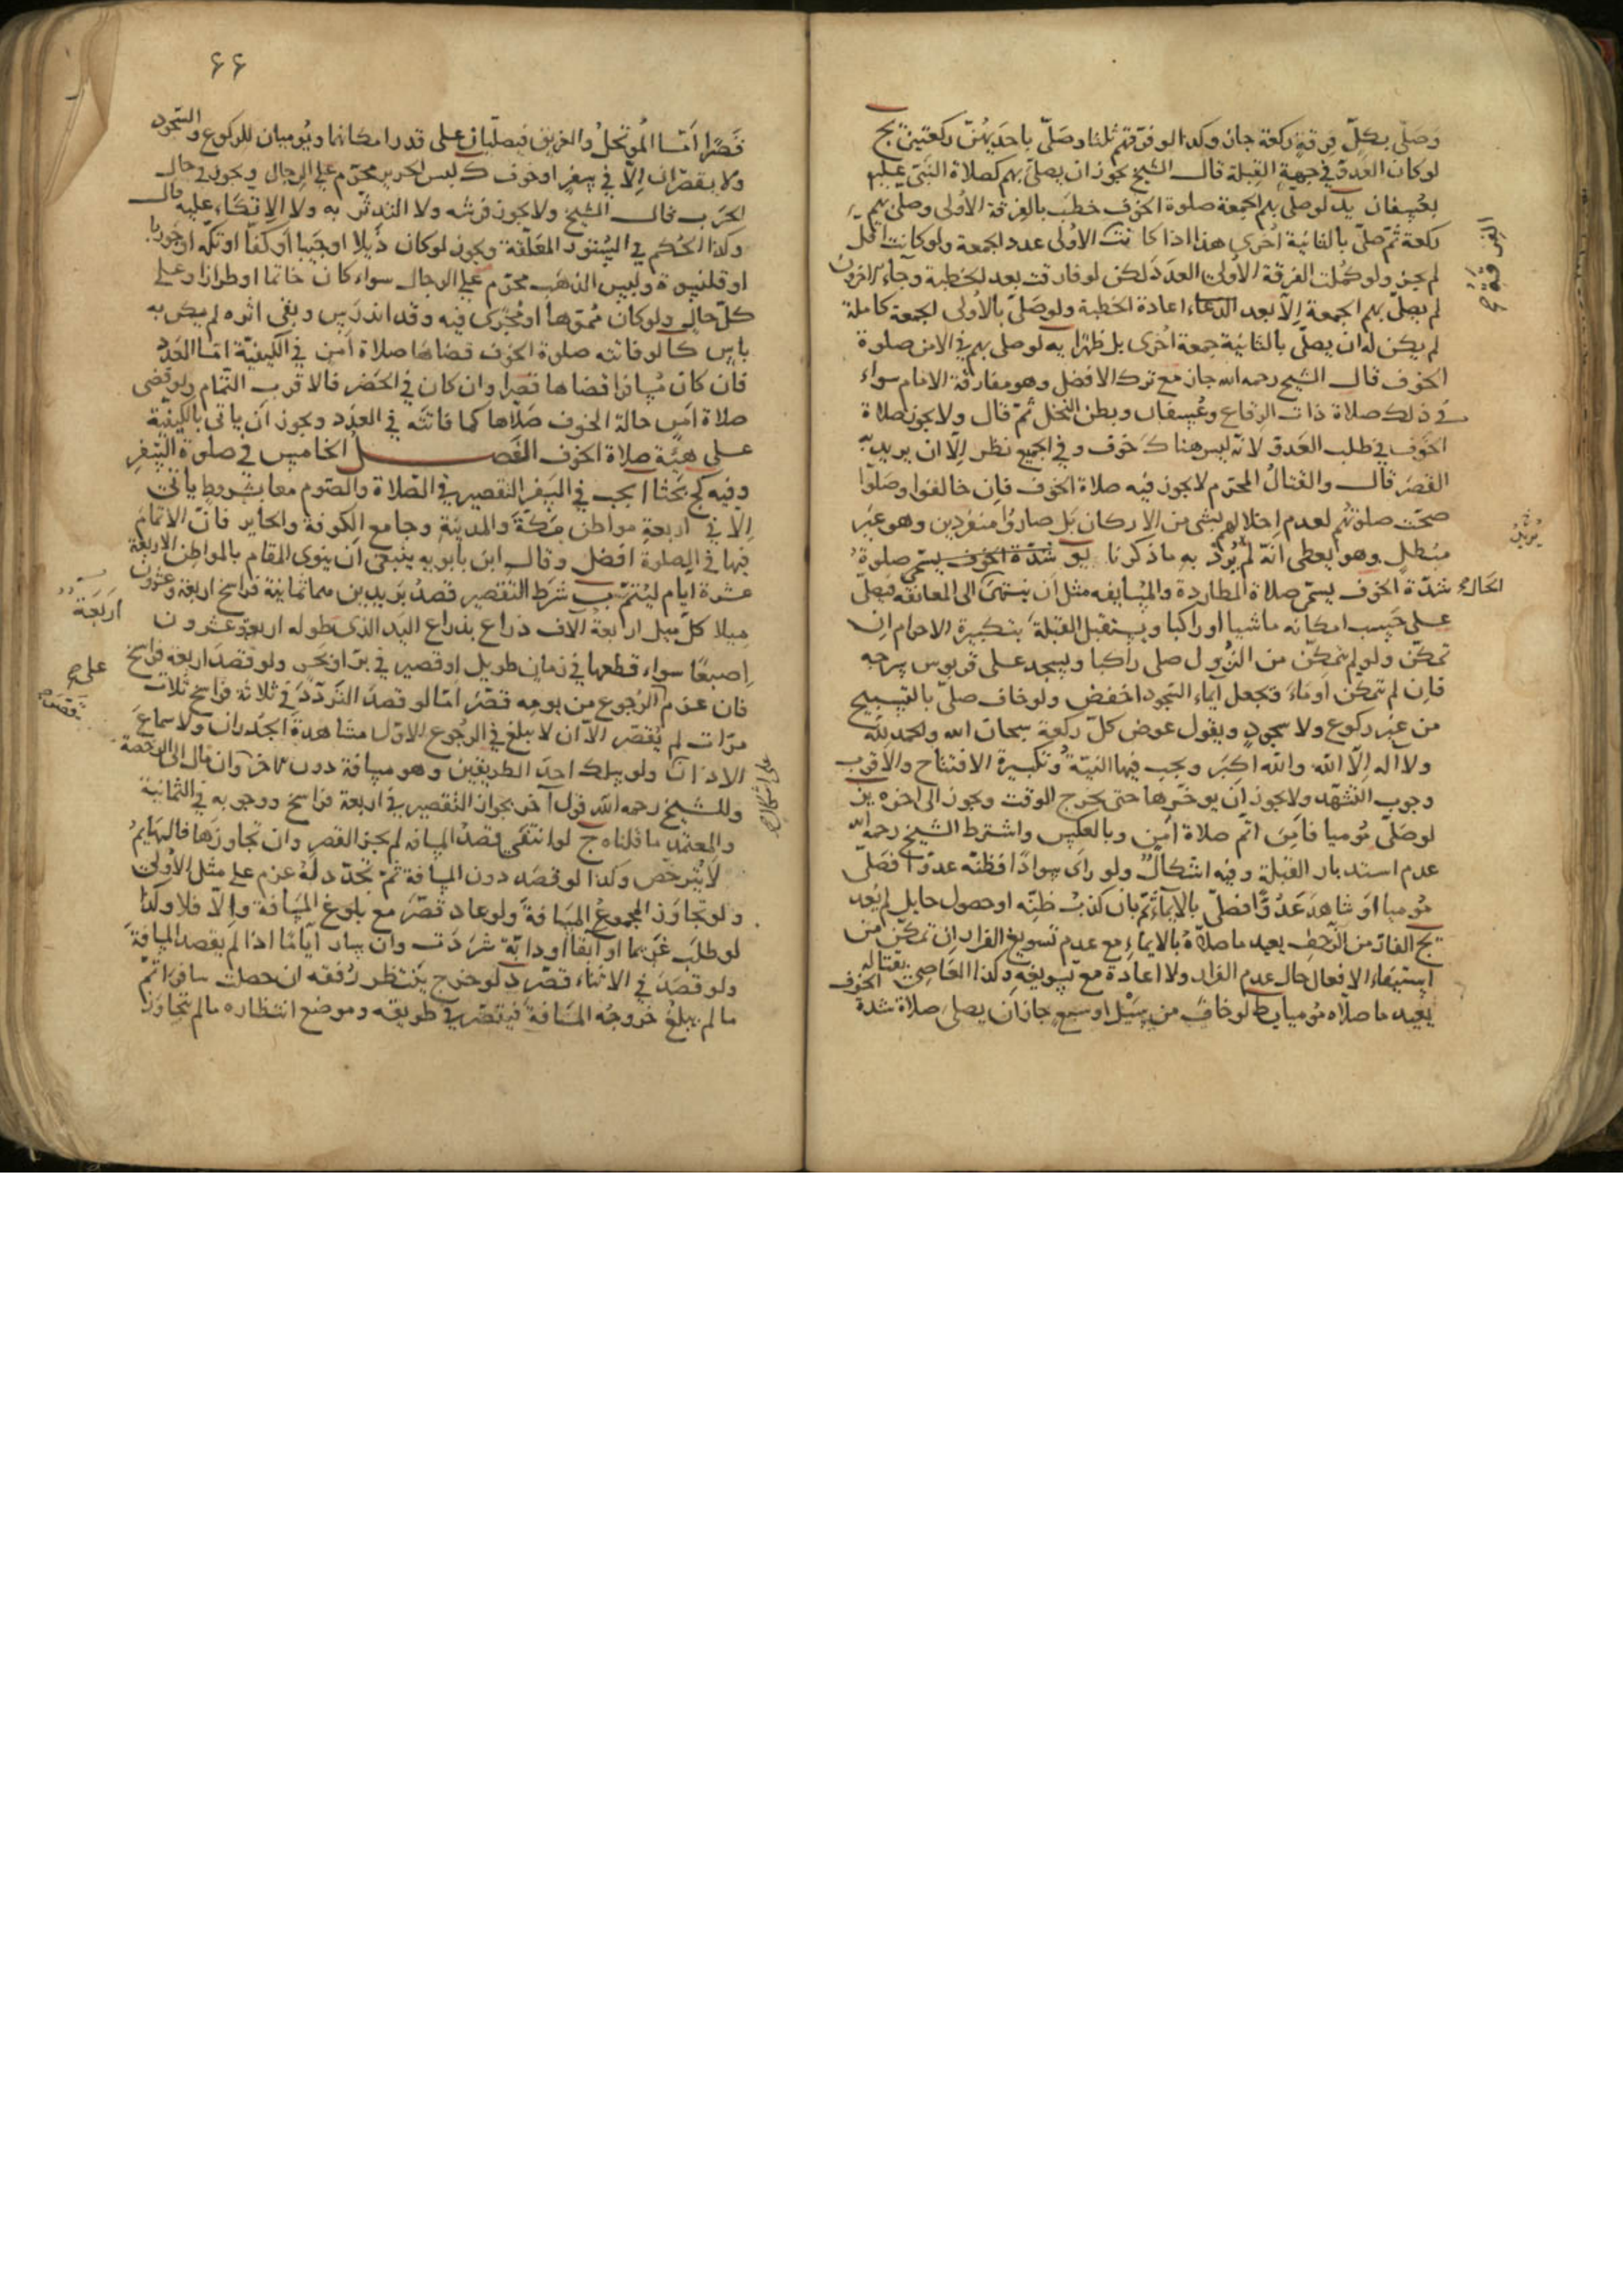 وصلّى بكلّ فرقة ركعة جاز وكذا لو فرّقهم ثلثا وصلّى باحديهنّ ركعتين يج
لو كان العدوّ في جهة القبلة قال الشيخ يجوز ان يصلّي بهم كصلاة النبيّ عليه
بعسفان يد لو صلّى بهم الجمعة صلوة الخوف خطب بالفرقة الاولى وصلى بهم
ركعة ثمّ صلّى بالثانية اخرى هذا اذا كانت الاولى عدد الجمعة ولو كانت اقل
لم يجز ولو كملت الفرقة الاولى العدد لكن لو فارقت بعد الخطبة وجاء الاخرون
لم يصلّ بهم الجمعة إلّا بعد اعادة الخطبة ولو صلّى بالاولى الجمعة كاملة
لم يكن له ان يصلّي بالثانية جمعة اخرى بل ظهرا يه لو صلى بهم في الامن صلوة
الخوف قال الشيخ رحمه الله جاز مع ترك الافضل وهو مفارقة الامام سواء
في ذلك صلاة ذات الرقاع وعسفان وبطن النخل ثمّ قال ولا يجوز صلاة
الخوف في طلب العدوّ لانّه ليس هناك خوف وفي الجميع نظر إلّا ان يريد به
القصر قال والقتال المحرّم لا يجوز فيه صلاة الخوف فإن خالفوا وصلّوا
صحّت صلوتهم لعدم اخلالهم بشئ من الاركان بل صاروا منفردين وهو غير
مبطل وهو يعطى انّه لم يرد به ما ذكرنا يو شدّة الخوف يسمّى صلوة
شدّة الخوف يسمّى صلاة المطاردة والمسايفه مثل أن ينتهى الى المعانقه فيصلّى
على حسب امكانه ماشيا او راكبا ويستقبل القبلة بتكبيرة الاحرام إن
تمكّن ولو لم يتمكّن من النزول صلى راكبا ويسجد على قربوس سرجه
فإن لم يتمكن اوماء وتجعل ايماء السّجود اخفض ولو خاف صلّى بالتسبيح
من غير ركوع ولا سجود ويقول عوض كلّ ركعة سبحان الله والحمد لله
ولا اله إلّا الله والله اكبر ويجب فيها النيّة وتكبيرة الافتتاح والأقرب
وجوب التشهّد ولا يجوز أن يوخّرها حتى يخرج الوقت ويجوز الى اخره يز
لو صلّى موميا فأمن اتم صلاة امن وبالعكس واشترط الشيخ رحمه الله
عدم استدبار القبلة وفيه اشكال ولو رأى سوادا فظنّه عدوّا فصلّى
موميا او شاهد عدوّا فصلّى بالايماء ثمّ بان كذب ظنّه او حصول حايل لم يعد
يح الفارّ من الزحف يعيد ما صلاه بالايماء مع عدم تسويغ الفرار ان تمكّن من
استيفاء الافعال حال عدم الفرار ولا اعادة مع تسويغه وكذا العاصي بقتاله
يعيد ما صلّاه موميا يط لو خاف من سيل او سبع جاز ان يصلى صلاة شدة الخوف
الفرقة ح
يريد
الحادي
٦٦
قصرا امّا الموتحل والغريق فيصلّيان على قدر امكانهما ويوميان للركوع والسّجود
ولا يقصّران إلّا في سفر او خوف ك لبس الحرير محرّم على الرجال ويجوز في حال
الحرب قال الشيخ ولا يجوز فرشه ولا التدثّر به ولا الاتكاء عليه قال
وكذا الحكم في الستور المعلّقة ويجوز لو كان ذيلا او جيبا او كفّا او تكّة او جوربا
او قلنسوة ولبس الذهب محرّم على الرجال سواء كان خاتما او طرازا وعلى
كلّ حال ولو كان مموّها او مجرى فيه وقد اندرس وبقى اثره لم يكن به
باس كا لو فاتته صلوة الخوف قضاها صلاة أمن في الكيفيّة امّا العدد
فان كان مسافرا قضاها قصرا وان كان في الحضر فالاقرب التّمام ولو قضى
صلاة امن حالة الخوف صلّاها كما فاتته في العدد ويجوز أن ياتى بالكيفيّة
على هيئة صلاة الخوف الفصل الخامس في صلوة السّفر
وفيه كج بحثا ا يجب في السفر التقصير في الصّلاة والصّوم معا بشروط ياتى
إلّا في اربعة مواطن مكّة والمدينة وجامع الكوفة والحاير فانّ الاتمام
فيها في الصلوة افضل وقال ابن بابويه ينبغى ان ينوى المقام بالمواطن الاربعة
عشرة ايام ليتمّ ب شرط التقصير قصد بريدين هما ثمانية فراسخ اربعة وعشرون
ميلا كلّ ميل اربعة آلاف ذراع بذراع اليد الذى طوله اربعة وعشرون
إصبعا سواء قطعها في زمان طويل او قصير في برّ او بحر ولو قصد اربعة فراسخ
فان عزم الرجوع من يومه قصّر امّا لو قصد التردّد في ثلاثة فراسخ ثلاث
مرّات لم يقصّر الّا ان لا يبلغ في الرجوع الاوّل مشاهدة الجدران ولا سماع
الاذان ولو سلك احد الطريقين وهو مسافة دون الاخر وان مال الى الرخصة
وللشيخ رحمه الله قول آخر بجواز التقصير في اربعة فراسخ ووجوبه في الثمانية
والمعتمد ما قلناه ج لو انتفى قصد المسافه لم يجز القصر وان تجاوزها فالهايم
لا يترخّص وكذا لو قصد دون المسافة ثمّ تجدّد له عزم على مثل الأولى
ولو تجاوز المجموع المسافة ولو عاد قصّر مع بلوغ المسافة وإلّا فلا وكذا
لو طلب غريما او آبقا او دابّة شردت وان سار أيّاما اذا لم يقصد المسافة
ولو قصد في الاثناء قصّر د لو خرج ينتظر رفقه ان حصلت سافر اتمّ
ما لم يبلغ خروجه المسافة فيقصّر في طريقه وموضع انتظاره ما لم يتجاوز
أربعة
على ح
على اشكال